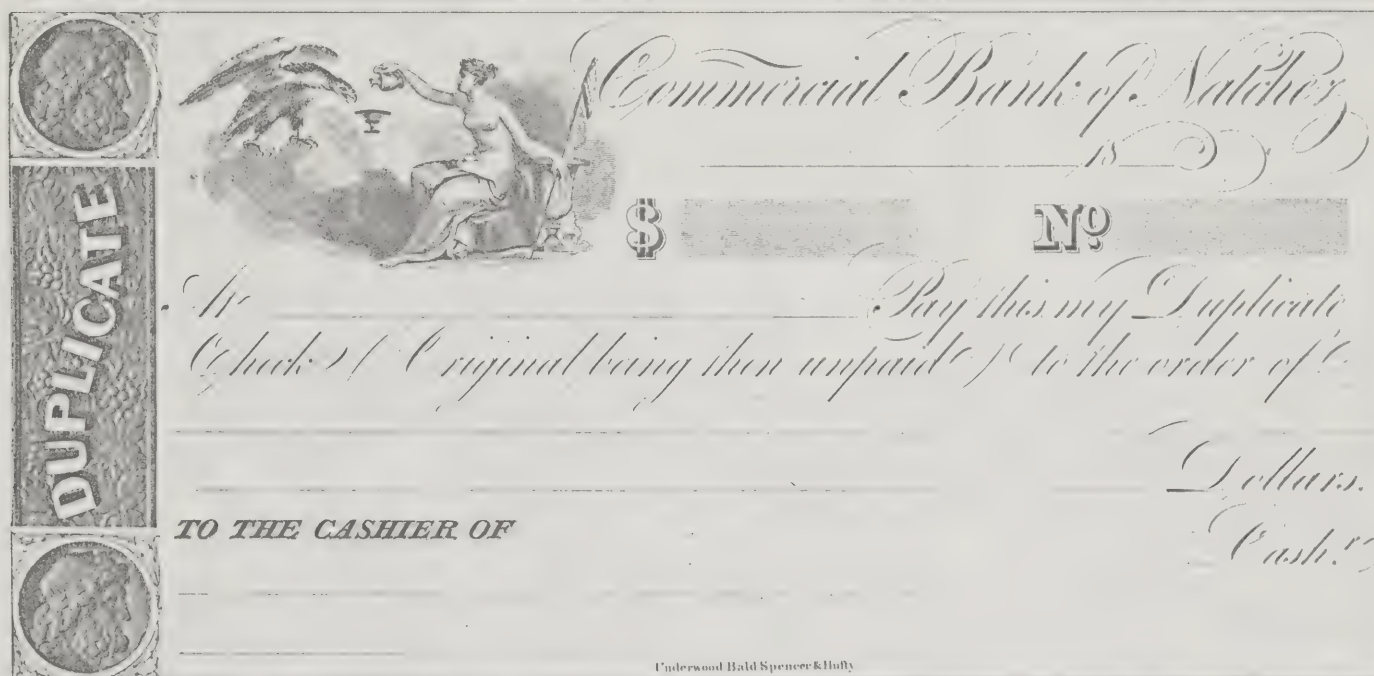 DUPLICATE
Commercial Bank of Natchez
18
$ No
At Pay this my Duplicate
Check (Original being then unpaid) to the order of
Dollars.
TO THE CASHIER OF
Cash.r
Underwood Bald Spencer & Hufty